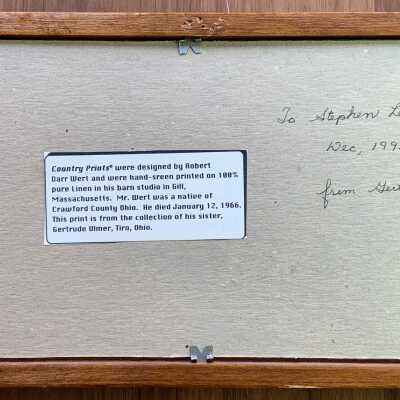 Country Prints® were designed by Robert
Darr Wert and were hand-sreen printed on 100%
pure linen in his barn studio in Gill,
Massachusetts. Mr. Wert was a native of
Crawford County Ohio. He died January 12, 1966.
This print is from the collection of his sister,
Gertrude Ulmer, Tiro, Ohio.
To Stephen
Dec, 199
from